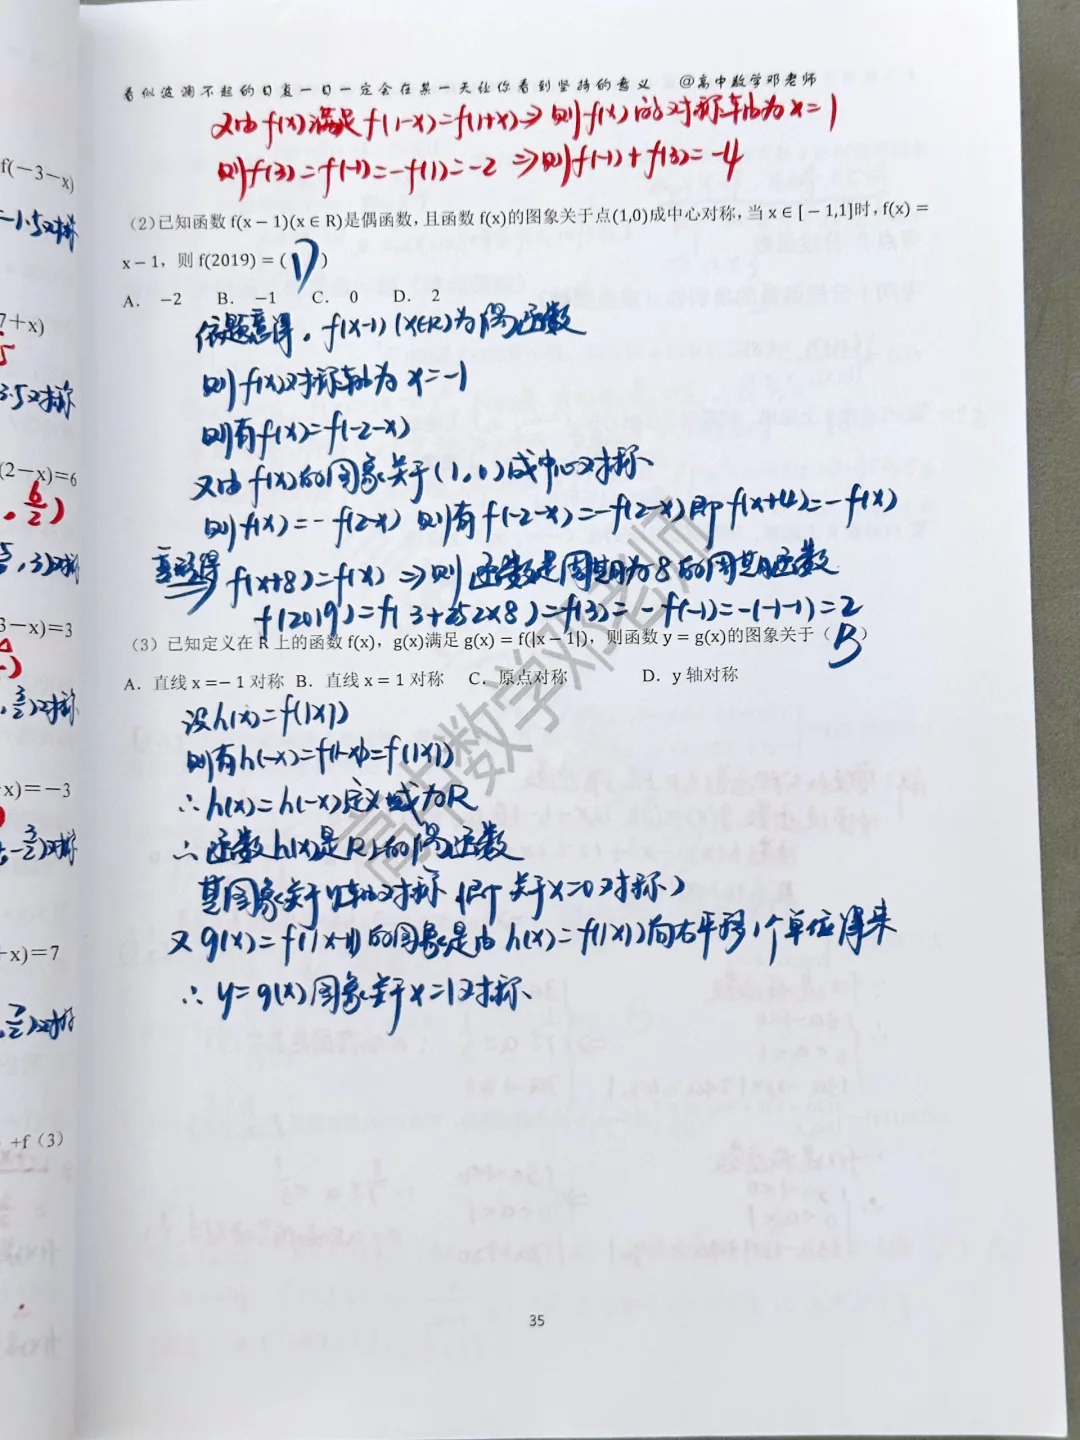 看似波澜不起的日复一日一定会在某一天让你看到坚持的意义 @高中数学邓老师
又由f(x)满足f(1-x)=f(1+x)⇒则f(x)的对称轴为x=1
则f(3)=f(-1)=-f(1)=-2 ⇒则f(-1)+f(3)=-4
(2)已知函数 f(x − 1)(x ∈ R)是偶函数，且函数 f(x)的图象关于点(1,0)成中心对称，当 x ∈ [ − 1,1]时，f(x) =
x − 1，则 f(2019) = ( D )
A. −2 B. −1 C. 0 D. 2
依题意得，f(x-1)(x∈R)为偶函数
则f(x)对称轴为x=-1
则有f(x)=f(-2-x)
又由f(x)的图象关于(1,0)成中心对称
则f(x)=-f(2-x) 则有f(-2-x)=-f(2-x)即f(x+4)=-f(x)
变形得 f(x+8)=f(x) ⇒则函数是周期为8的周期函数
f(2019)=f(3+252×8)=f(3)=-f(-1)=-(-1-1)=2
(3) 已知定义在 R 上的函数 f(x)，g(x)满足 g(x) = f(|x − 1|)，则函数 y = g(x)的图象关于（ B ）
A. 直线 x =− 1 对称 B. 直线 x = 1 对称 C. 原点对称 D. y 轴对称
设h(x)=f(|x|)
则有h(-x)=f(|-x|)=f(|x|)
∴h(x)=h(-x)定义域为R
∴函数h(x)是R上的偶函数
其图象关于y轴对称(即关于x=0对称)
又g(x)=f(|x-1|)的图象是由h(x)=f(|x|)向右平移1个单位得来
∴y=g(x)图象关于x=1对称
高中数学邓老师
35
f(−3−x)
-1.5对称
7+x)
5
3.5对称
(2−x)=6
, 6/2)
,3)对称
3−x)=3
, 3/2)对称
x)=−3
, -3/2)对称
+x)=7
, 7/2)对称
+f（3）